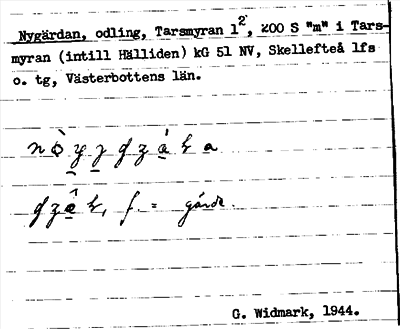 Nygärdan, odling, Tarsmyran 1², 200 S "m" i Tars-
myran (intill Hälliden) kG 51 NV, Skellefteå lfs
o. tg, Västerbottens län.
f. = gärde.
G. Widmark, 1944.